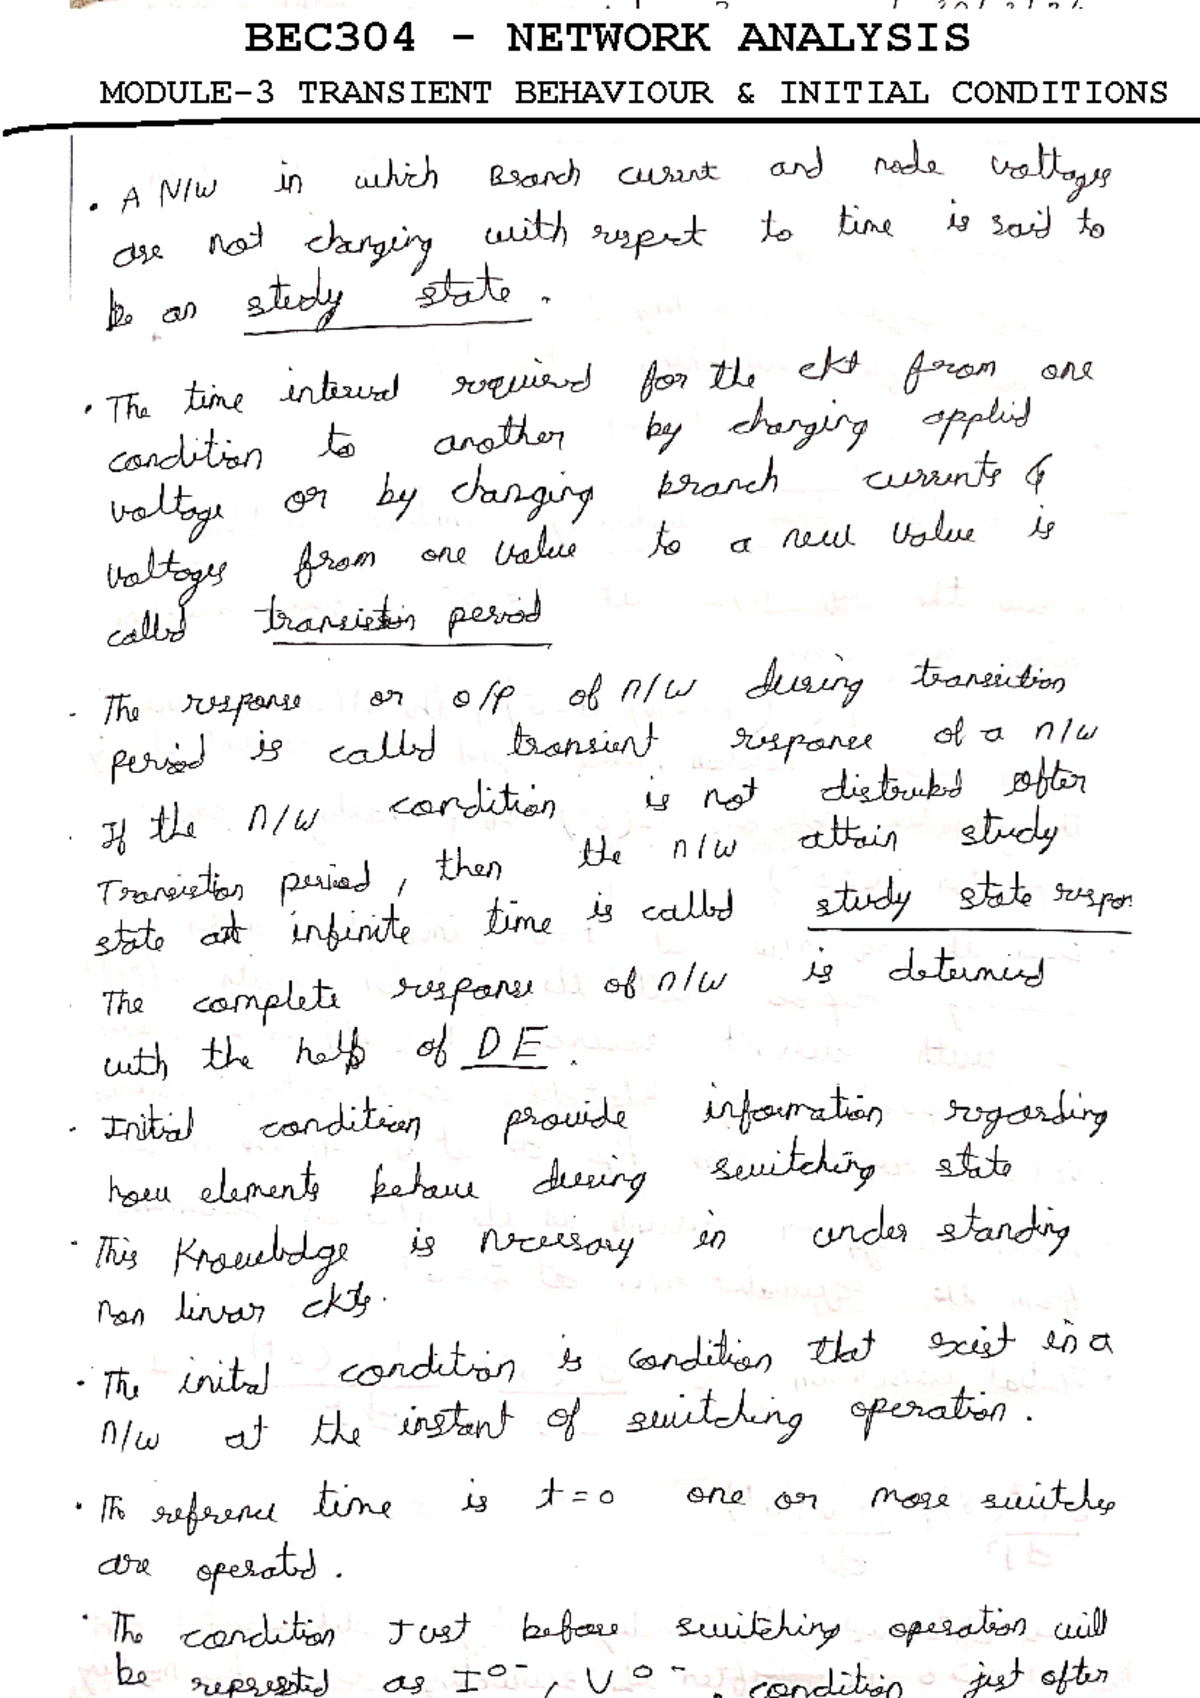 BEC304 - NETWORK ANALYSIS
MODULE-3 TRANSIENT BEHAVIOUR & INITIAL CONDITIONS
• A N/W in which Branch current and node voltages
are not changing with respect to time is said to
be an study state.
• The time interval required for the ckt from one
condition to another by changing applied
voltage or by changing branch currents &
voltages from one value to a new value is
called transistin period
- The response or o/p of n/w during transition
period is called transient response of a n/w
. If the n/w condition is not distrubed after
Transistion period, then the n/w attain study
state at infinite time is called study state respon
The complete response of n/w is determined
with the help of DE.
- Initial condition provide information regarding
how elements behave during switching state
• This Knowledge is necessary in under standing
non linear ckts.
• The initial condition is condition that exist in a
n/w at the instant of switching operation.
• The reference time is t=0 one or more switches
are operated.
• The condition Just before switching operation will
be as I0-, V0- condition just after